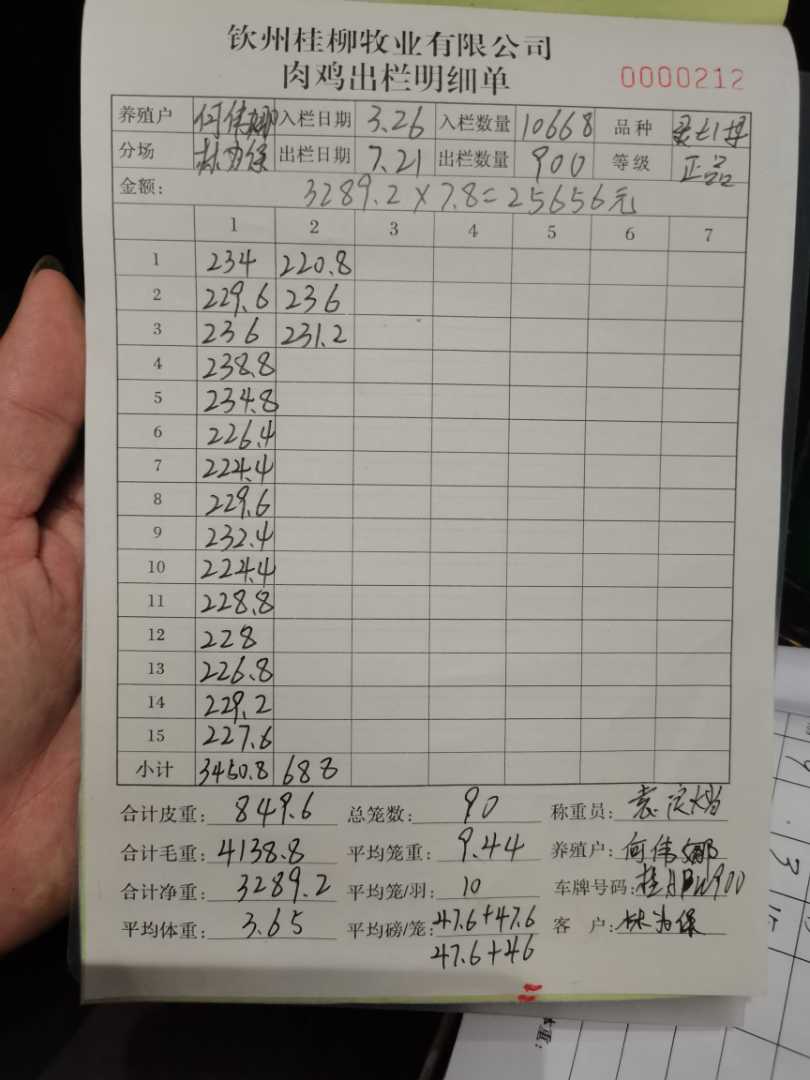 钦州桂柳牧业有限公司
肉鸡出栏明细单 0000212
养殖户 何伟娜 入栏日期 3.26 入栏数量 10668 品种
分场 出栏日期 7.21 出栏数量 900 等级 正品
金额: 3289.2×7.8=25656元
1 2 3 4 5 6 7
1 234 220.8
2 229.6 236
3 236 231.2
4 238.8
5 234.8
6 226.4
7 224.4
8 229.6
9 232.4
10 224.4
11 228.8
12 228
13 226.8
14 229.2
15 227.6
小计 3450.8 688
合计皮重: 849.6 总笼数: 90 称重员:
合计毛重: 4138.8 平均笼重: 9.44 养殖户: 何伟娜
合计净重: 3289.2 平均笼/羽: 10 车牌号码:
平均体重: 3.65 平均磅/笼: 47.6+47.6 客户: 林为保
47.6+46